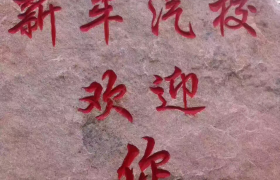 新车汽校
欢迎
你